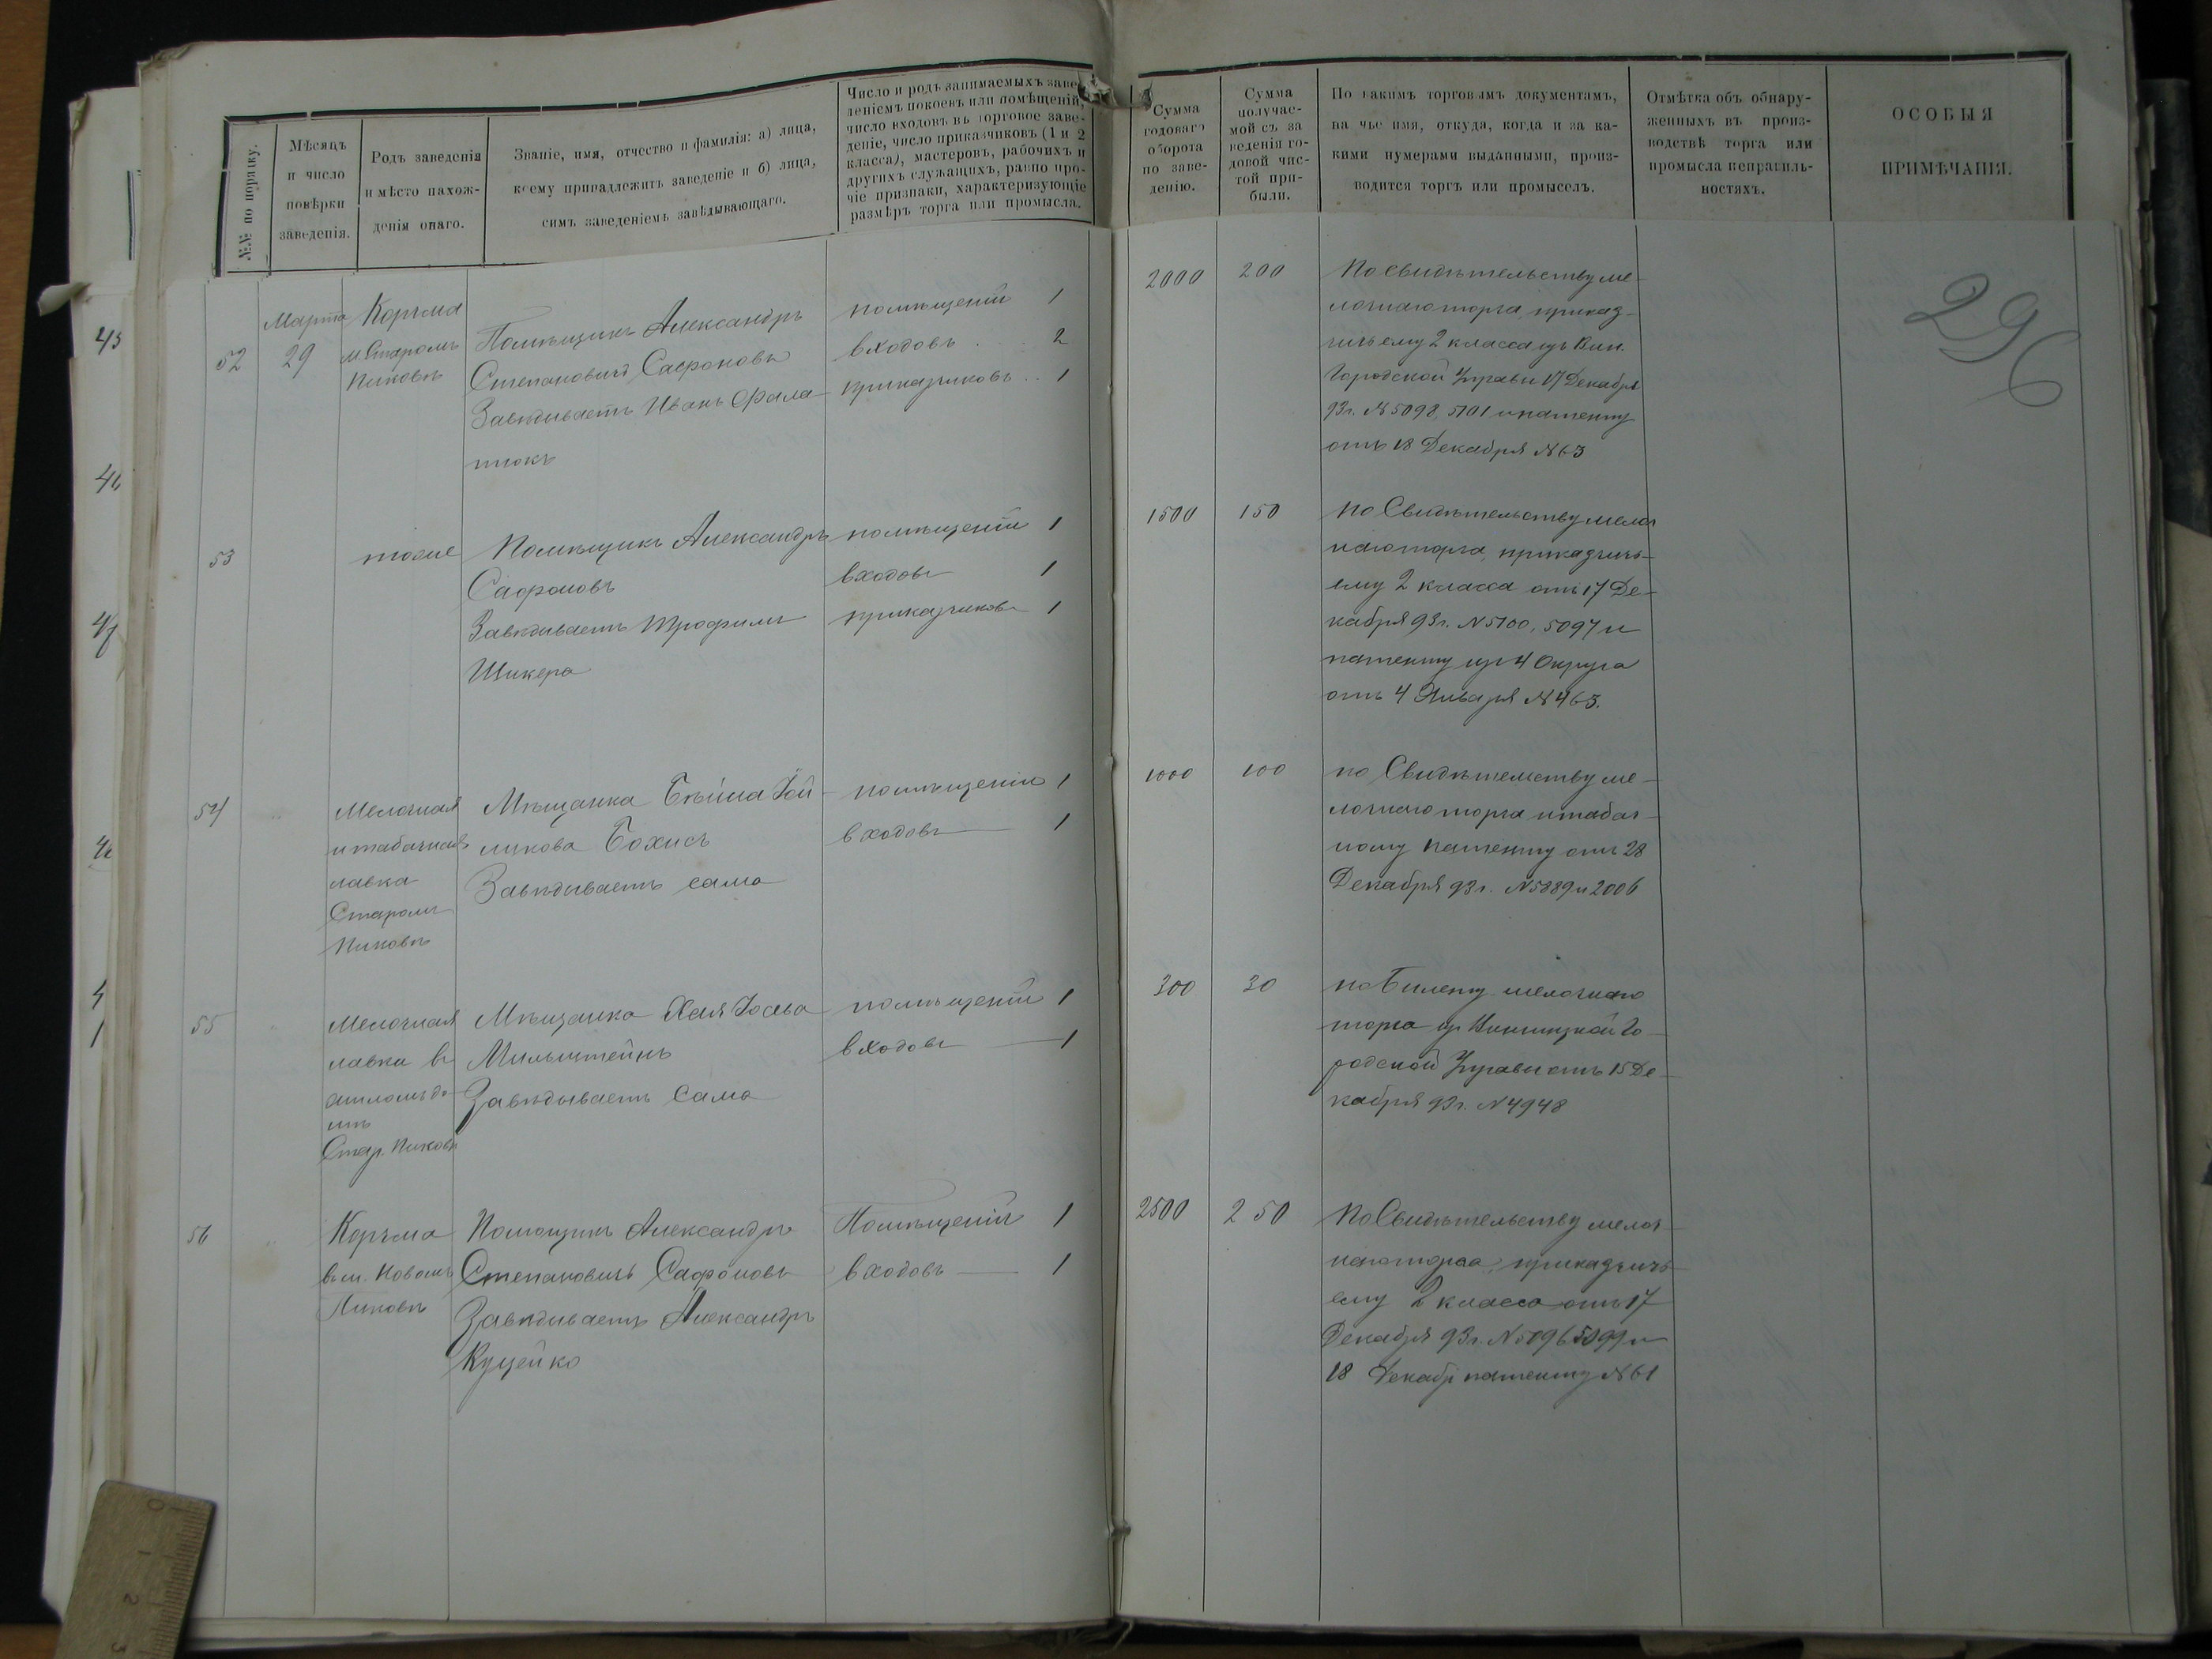 №№ по порядку.
Мѣсяцъ
и число
повѣрки
заведенія.
Родъ заведенія
и мѣсто нахож-
денія онаго.
Званіе, имя, отчество и фамилія: а) лица,
коему принадлежитъ заведеніе и б) лица,
симъ заведеніемъ завѣдывающаго.
Число и родъ занимаемыхъ заве-
деніемъ покоевъ или помѣщеній,
число входовъ въ торговое заве-
деніе, число приказчиковъ (1 и 2
класса), мастеровъ, рабочихъ и
другихъ служащихъ, равно про-
чіе признаки, характеризующіе
размѣръ торга или промысла.
Сумма
годоваго
оборота
по заве-
денію.
Сумма
получае-
мой съ за
веденія го-
довой чис-
той при-
были.
По какимъ торговымъ документамъ,
на чье имя, откуда, когда и за ка-
кими нумерами выданными, произ-
водится торгъ или промыселъ.
Отмѣтка объ обнару-
женныхъ въ произ-
водствѣ торга или
промысла неправиль-
ностяхъ.
ОСОБЫЯ
ПРИМѢЧАНІЯ.
296
52
Марта
29
Корчма
м. Старомъ
Пиковѣ
Помѣщикъ Александръ
Степановичъ Сафоновъ
Завѣдываетъ Иванъ Фала-
тюкъ
помѣщеній 1
входовъ 2
приказчиковъ 1
2000
200
По свидѣтельству ме-
лочнаго торга, приказ-
чичьему 2 класса изъ Вин.
Городской Управы 17 Декабря
93 г. № 5098, 5101 и патенту
отъ 18 Декабря № 63
53
тоже
Помѣщикъ Александръ
Сафоновъ
Завѣдываетъ Трофимъ
Шикера
помѣщеній 1
входовъ 1
приказчиковъ 1
1500
150
по Свидѣтельству мелоч
наго торга, приказчичь-
ему 2 класса отъ 17 Де-
кабря 93 г. № 5100, 5097 и
патенту изъ 4 Округа
отъ 4 Января № 463.
54
Мелочная
и табачная
лавка
Старомъ
Пиковѣ
Мѣщанка Бейла
Бохисъ
Завѣдываетъ сама
помѣщеній 1
входовъ 1
1000
100
по Свидѣтельству ме-
лочнаго торга и табач-
ному патенту отъ 28
Декабря 93 г. № 5889 и 2006
55
Мелочная
лавка въ
домѣ
Стар. Пиковѣ
Мѣщанка Хая
Мильштейнъ
Завѣдываетъ Сама
помѣщеній 1
входовъ 1
300
30
по Билету мелочнаго
торга изъ Винницкой Го-
родской Управы отъ 15 Де-
кабря 93 г. № 4948
56
Корчма
въ м. Новомъ
Пиковѣ
Помощикъ Александръ
Степановичъ Сафоновъ
Завѣдываетъ Александръ
Куцейко
Помѣщеній 1
входовъ 1
2500
250
по Свидѣтельству мелоч-
наго торга, приказчичь-
ему 2 класса отъ 17
Декабря 93 г. № 5096 5099 и
18 Декабр патенту № 61